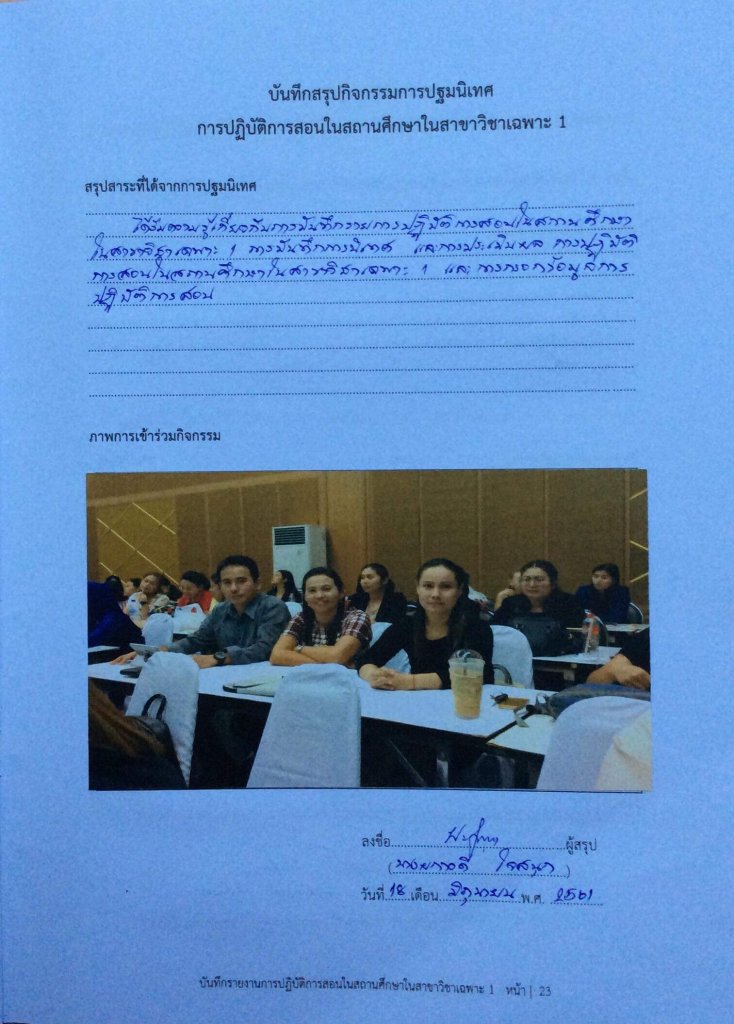 บันทึกสรุปกิจกรรมการปฐมนิเทศ
การปฏิบัติการสอนในสถานศึกษาในสาขาวิชาเฉพาะ 1
สรุปสาระที่ได้จากการปฐมนิเทศ
ได้รับความรู้เกี่ยวกับการบันทึกรายการปฏิบัติการสอนในสถานศึกษา
ในสาขาวิชาเฉพาะ 1 การบันทึกการนิเทศ และการประเมินผล การปฏิบัติ
การสอนในสถานศึกษาในสาขาวิชาเฉพาะ 1 และ การกรอกข้อมูลการ
ปฏิบัติการสอน
ภาพการเข้าร่วมกิจกรรม
ลงชื่อ ผู้สรุป
วันที่ 18 เดือน มิถุนายน พ.ศ. 2561
บันทึกรายงานการปฏิบัติการสอนในสถานศึกษาในสาขาวิชาเฉพาะ 1 หน้า | 23